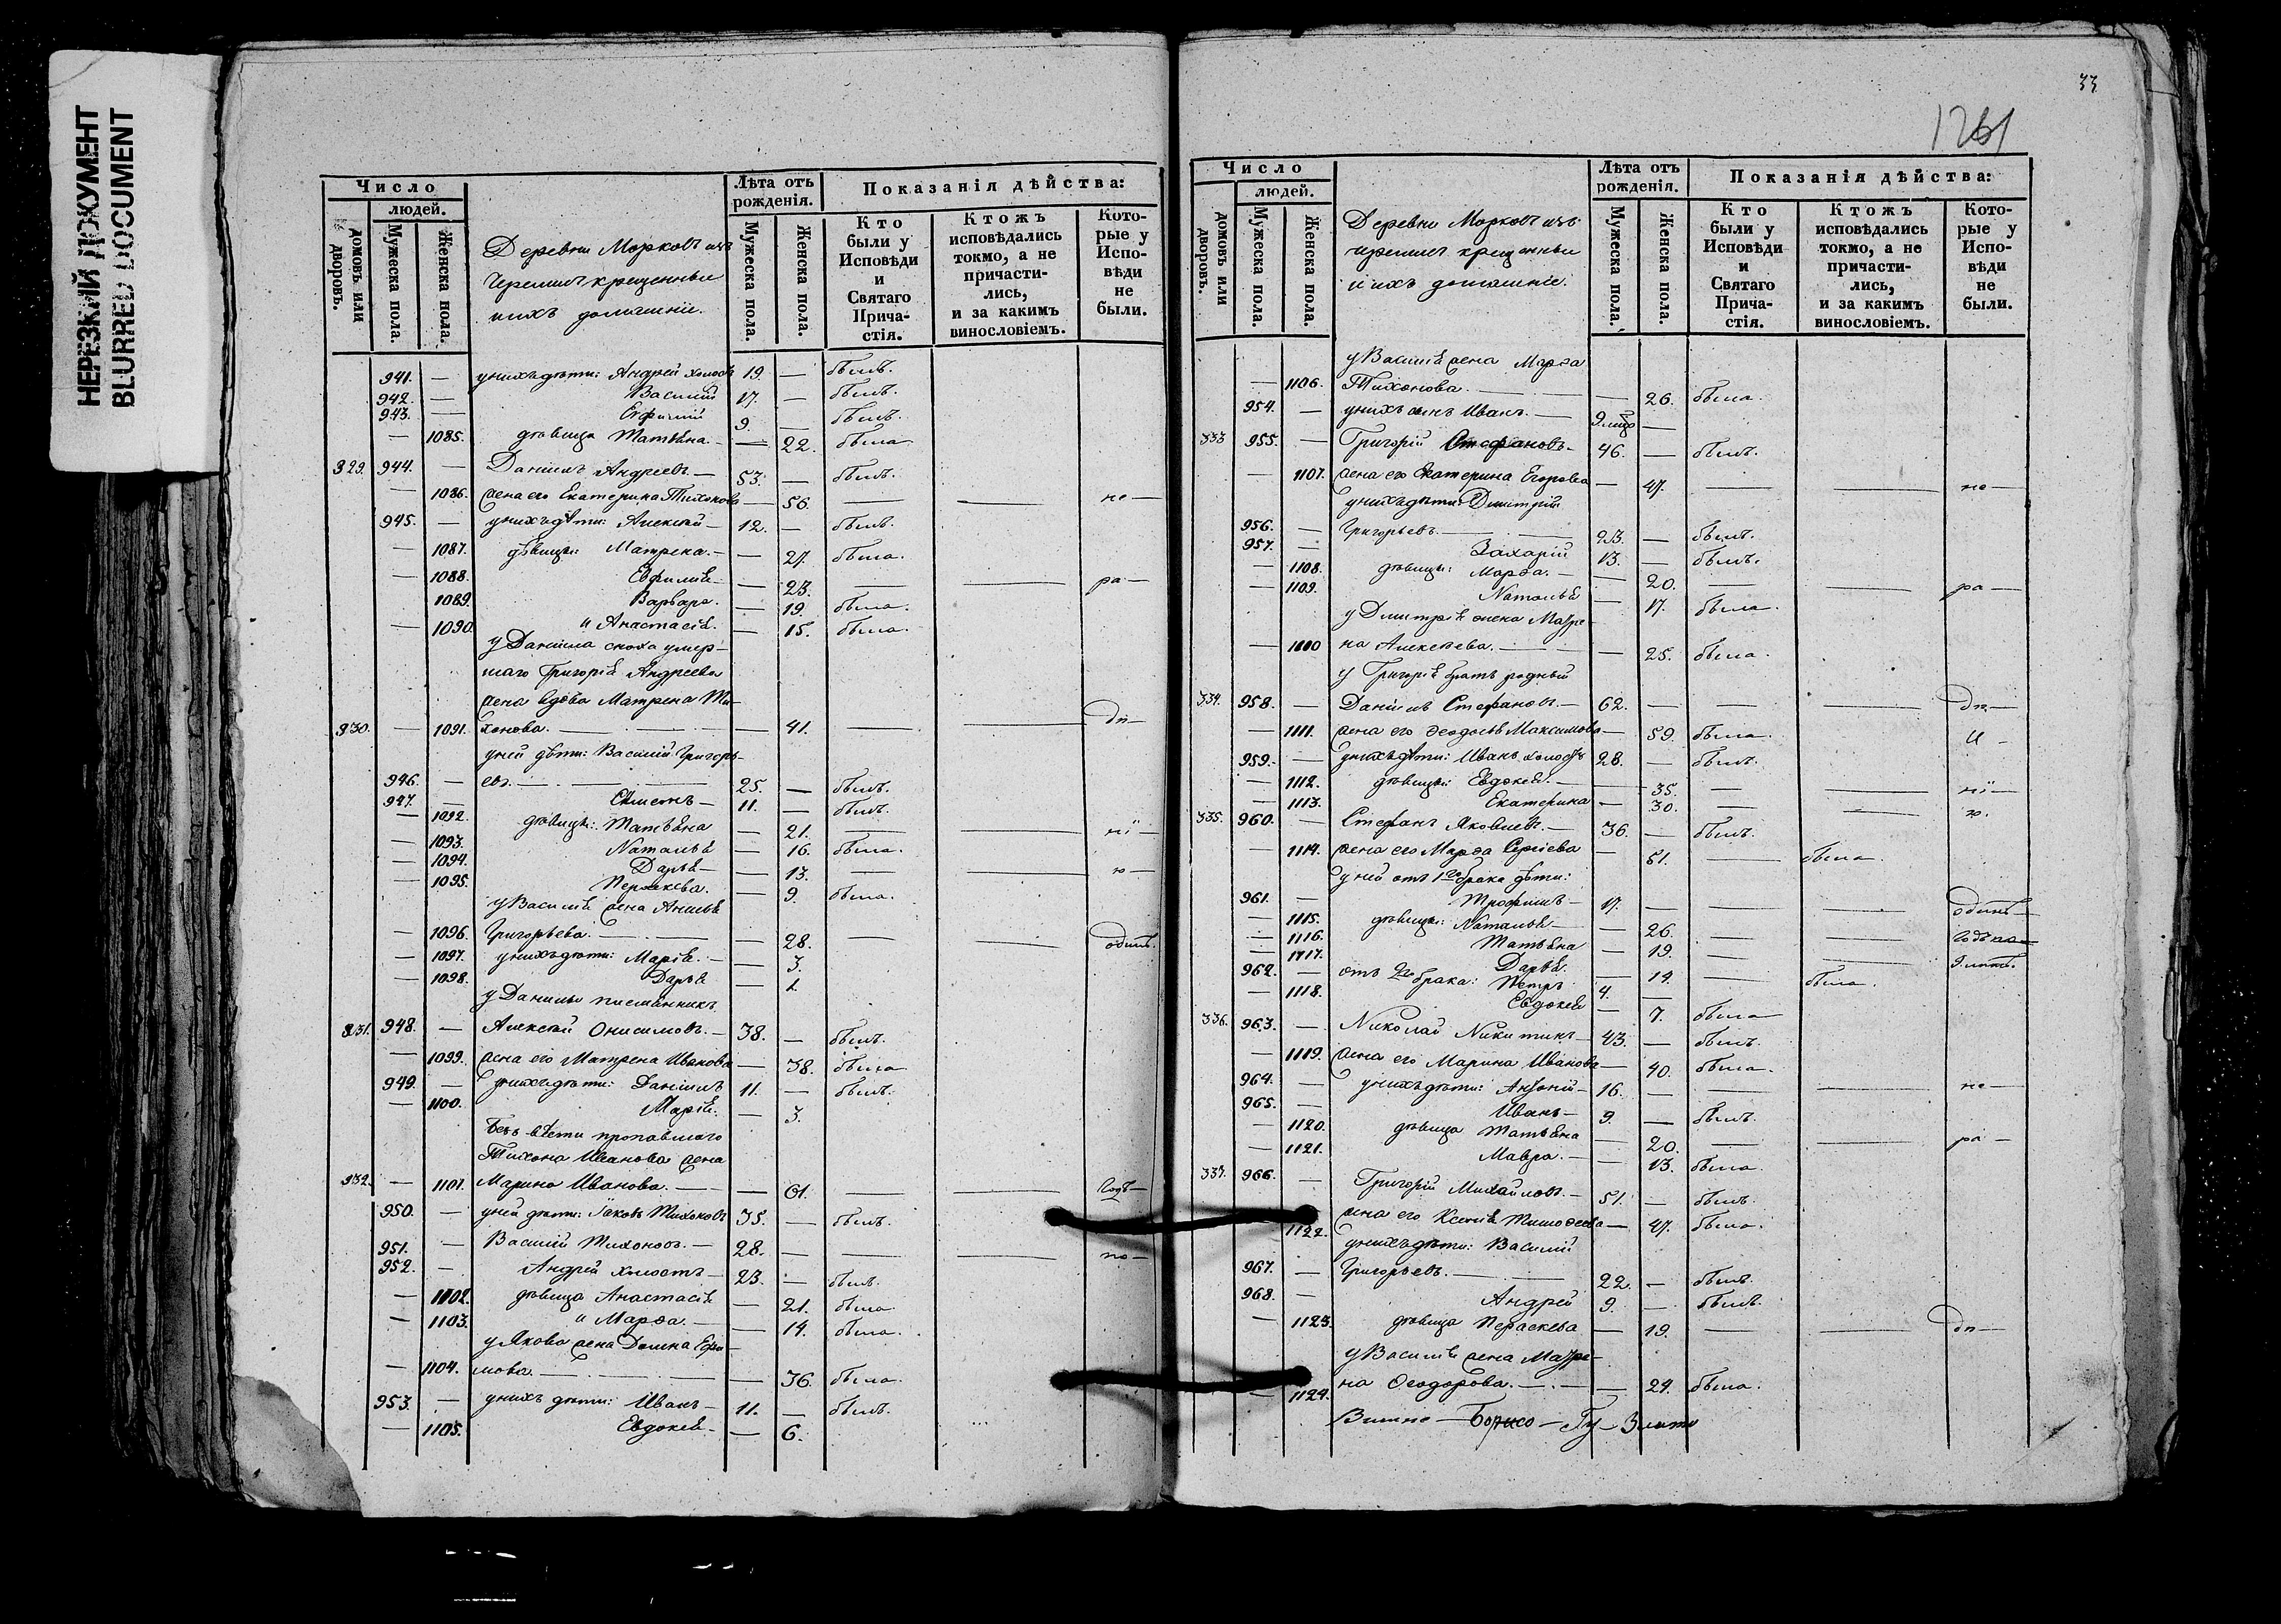 НЕРЕЗКИЙ ДОКУМЕНТ
BLURRED DOCUMENT
Число
людей.
домовъ или дворовъ.
Мужеска пола.
Женска пола.
Деревни Морковъ изъ
Черемисъ крещенныи
и ихъ домашніи.
Лѣта отъ рожденія.
Мужеска пола.
Женска пола.
Показанія дѣйства:
Кто были у Исповѣди и Святаго Причастія.
Ктожъ исповѣдались токмо, а не причастились, и за какимъ винословіемъ.
Которые у Исповѣди не были.
941. — у нихъ дѣти: Андрей холостъ 19. — былъ.
942. — Василий 17. — былъ.
943. — Евфимий 9. — былъ.
— 1085. дѣвица Татьяна — — 22. была
329. 944. — Даніилъ Андреевъ — 53. — былъ.
— 1086. жена его Екатерина Тихонова — 56. — — не —
945. — у нихъ дѣти: Алексѣй — 12. — былъ.
— 1087. дѣвицы: Матрена — — 27. была.
— 1088. Евфимія — — 23. — — ра —
1089. Варвара. — 19. была.
— 1090. и Анастасія. — 15. была.
у Даніила сноха умер-
шаго Григорія Андреева
жена вдова Матрена Ти-
330. — 1091. хонова. — — 41. — — дп —
у ней дѣти: Василій Григорь-
946. — евъ. — 25. — былъ.
947. — Сѣменъ — 11. — былъ.
— 1092. дѣвицы: Татьяна — 21. — — ні —
— 1093. Наталья — 16. была.
— 1094. Дарья — — 13. — — ю —
— 1095. Параскева. — 9. была.
у Василія жена Анисья
— 1096. Григорьева. — — 28. — — одинъ.
— 1097. у нихъ дѣти: Марія. — — 3.
— 1098. Дарья — 1.
у Данилы племянникъ
331. 948. — Алексѣй Онисимовъ. — 38. — былъ.
— 1099. жена его Матрена Иванова — 38. была
949. — у нихъ дѣти: Даніилъ 11. — былъ.
— 1100. Марія. — 3.
Безъ вѣсти пропавшаго
Тихона Иванова жена
332. — 1101. Марина Иванова. — — 61. — — годъ —
950. — у ней дѣти: Іаковъ Тихоновъ 35. — былъ.
951. — Василій Тихоновъ. — 28. — — — по —
952. — Андрей холостъ — 23. — былъ.
— 1102. дѣвица Анастасія — 21. была
— 1103. и Марѳа. — — 14. была.
у Якова жена Домна Ефи-
— 1104. мова. — — 36. была.
953. — у нихъ дѣти: Иванъ — 11. — былъ.
— 1105. Евдокія — — 6.
33
1261
Число
людей.
домовъ или дворовъ.
Мужеска пола.
Женска пола.
Деревни Морковъ изъ
черемисъ крещенныи
и ихъ домашніе.
Лѣта отъ рожденія.
Мужеска пола.
Женска пола.
Показанія дѣйства:
Кто были у Исповѣди и Святаго Причастія.
Ктожъ исповѣдались токмо, а не причастились, и за какимъ винословіемъ.
Которые у Исповѣди не были.
у Василія жена Марѳа
— 1106. Тихонова. — — 26. была.
954. — у нихъ сынъ Иванъ. —
333 955. — Григорій Стефановъ — 46. — былъ.
— 1107. жена его Екатерина Егорова — 47. — — не —
у нихъ дѣти: Димитрій
956. — Григорьевъ. — 23. — былъ.
957. — Захарій 13. — былъ.
— 1108. дѣвицы: Марѳа. — — 20. — — ра —
— 1109. Наталья — 17. была.
у Дмитрія жена Матре-
— 1110 на Алексѣева. — — 25. была.
у Григорія братъ родный
334. 958. — Даніилъ Стефановъ. — 62. — — — дп —
— 1111. жена его Ѳеодосья Максимова — 59. была. и —
959. — у нихъ дѣти: Иванъ холостъ 28. — былъ.
— 1112. дѣвицы: Евдокія. — — 35. — — ні —
— 1113. Екатерина — 30. — — ю.
335. 960. — Стефанъ Яковлевъ. — 36. — былъ.
— 1114. жена его Марѳа Сергіева — 51. — была
у ней отъ 1го брака дѣти:
961. — Трофимъ — 17. — — — одинъ —
— 1115. дѣвицы: Наталья — — 26. — —
— 1116. Татьяна — 19. — —
— 1117. Дарья. — 14. — была.
962. — отъ 2го брака: Петръ 4. —
— 1118. Евдокія — 7. была
336. 963. — Николай Никитинъ — 43. — былъ.
— 1119. жена его Марина Иванова — 40. была.
964. — у нихъ дѣти: Антоній — 16. — — — не —
965. — Иванъ — 9. — былъ.
— 1120. дѣвица Татьяна — 20. — — ра —
— 1121. Мавра. — — 13. была.
337. 966. — Григорій Михайловъ. — 51. — былъ.
1122. жена его Ксенія Тимоѳеева — 47. была.
у нихъ дѣти: Василій
967. — Григорьевъ. — 22. — былъ.
968. — Андрей 9. — былъ.
— 1123. дѣвица Параскева — 19. — — дп —
у Василія жена Матре-
— 1124. на Ѳеодорова. — — 24. была.